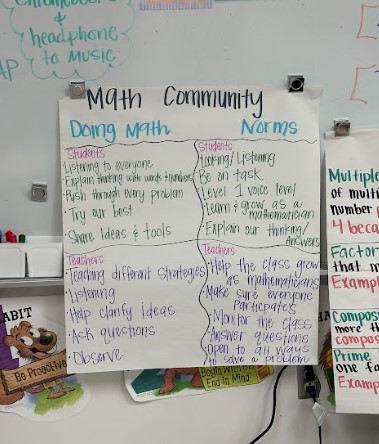 &
headphone
to music
Math Community
Doing Math
Norms
Students
Listening to everyone
Explain thinking with words + numbers
Push through every problem
· Try our best
· Share Ideas & tools
Students
Looking/Listening
Be on task
Level 1 voice level
Learn & grow as a
mathematician
· Explain our thinking/
Answers
Teachers
· Teaching different strategies
· Listening
· Help clarify ideas
· Ask questions
· Observe
Teachers
· Help the class grow
as mathematicians
· Make sure everyone
participates
· Monitor the class
· Answer questions
· Open to all ways
to solve a problem
Multiple
of multi
number
4 beca
Factor
that m
Exampl
Compos
more th
compos
Prime
one fa
Examp
ABIT
Be Proactive
Begin With the
End In Mind